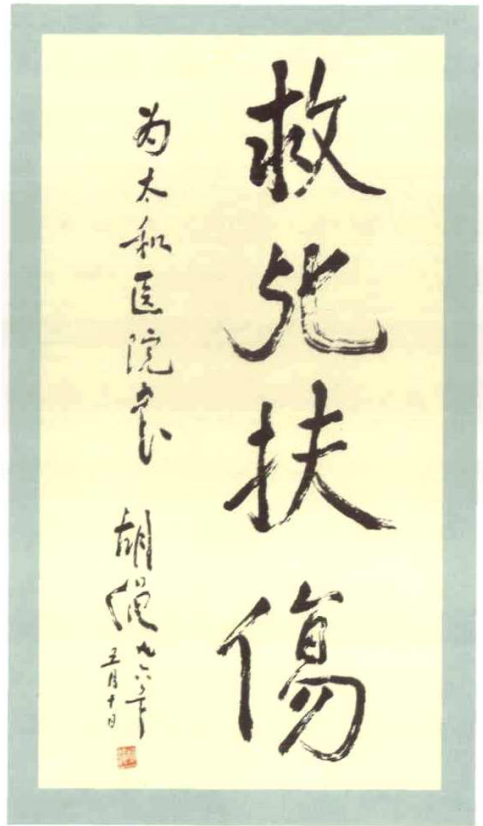 救死扶傷
为太和医院书
胡绳
九六年
五月十日